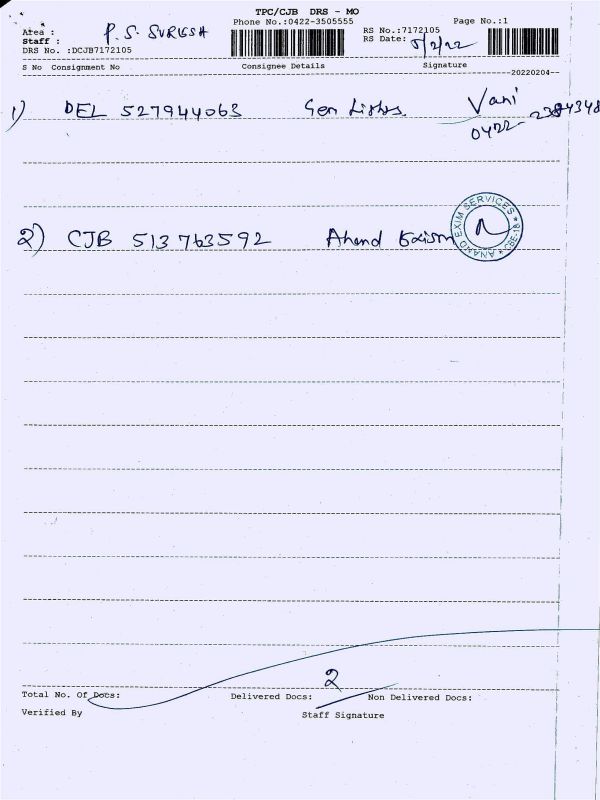 TPC/CJB DRS - MO
Phone No.:0422-3505555
Page No.:1
Area :
Staff : P. S. SURESH
DRS No. :DCJB7172105
RS No.:7172105
RS Date: 5/2/22
S No Consignment No Consignee Details Signature
--20220204--
1) DEL 527944063 Gen Vani
0422-2384348
2) CJB 513763592 Anand Exism
ANAND EXIM SERVICES * CBE-18 *
2
Total No. Of Docs: Delivered Docs: Non Delivered Docs:
Verified By Staff Signature